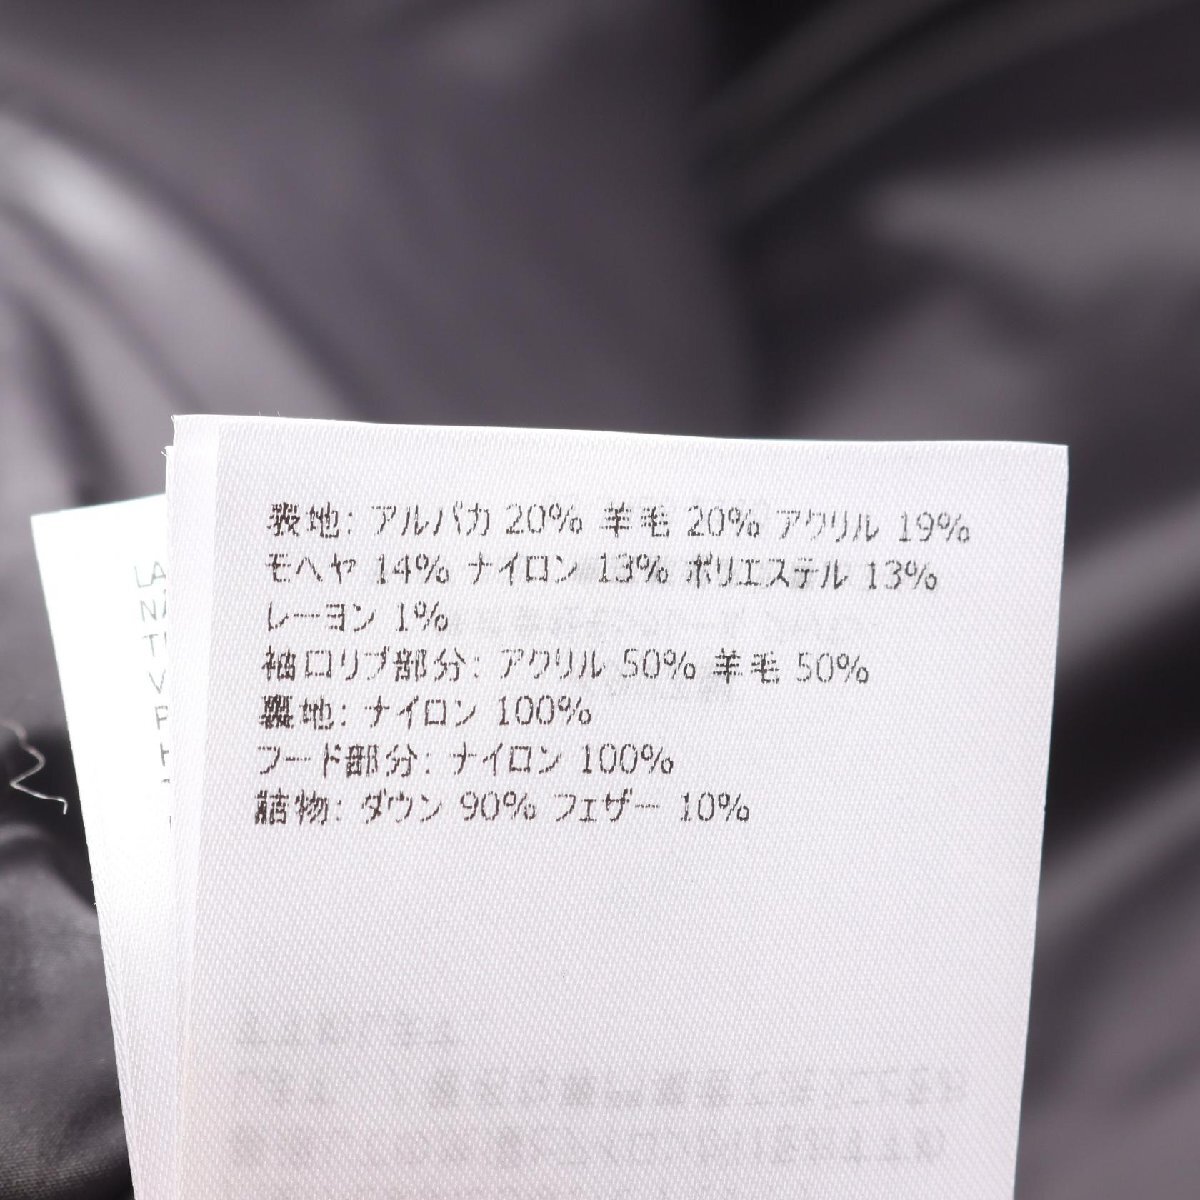 表地: アルパカ 20% 羊毛 20% アクリル 19%
モヘヤ 14% ナイロン 13% ポリエステル 13%
レーヨン 1%
袖口リブ部分: アクリル 50% 羊毛 50%
裏地: ナイロン 100%
フード部分: ナイロン 100%
詰物: ダウン 90% フェザー 10%
LA